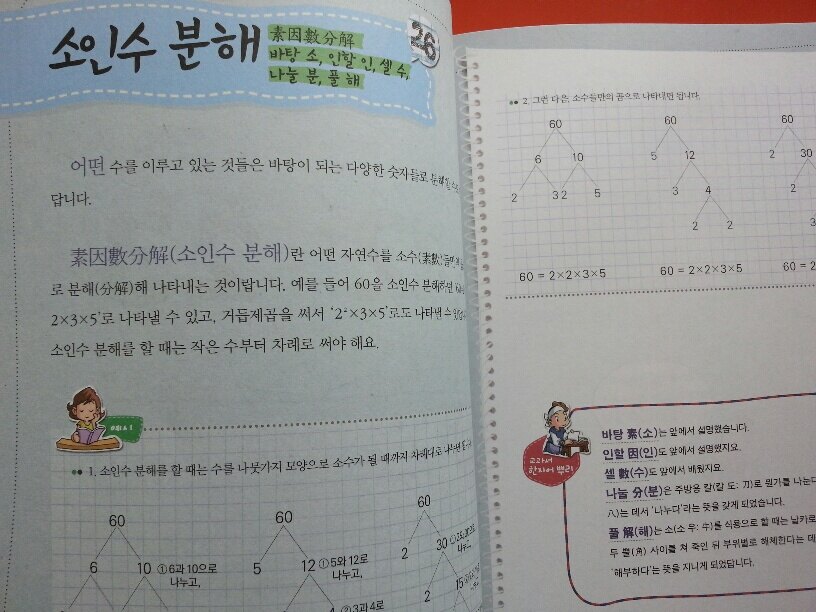 소인수 분해
素因數分解
바탕 소, 인할 인, 셀 수,
나눌 분, 풀 해
26
어떤 수를 이루고 있는 것들은 바탕이 되는 다양한 숫자들로
답니다.
素因數分解(소인수 분해)란 어떤 자연수를 소수(素數)
로 분해(分解)해 나타내는 것이랍니다. 예를 들어 60을 소인수 분해하면
2×3×5’로 나타낼 수 있고, 거듭제곱을 써서 ‘2²×3×5’로도 나타낼 수
소인수 분해를 할 때는 작은 수부터 차례로 써야 해요.
1. 소인수 분해를 할 때는 수를 나뭇가지 모양으로 소수가 될 때까지 차례대로
60
6 10 ①6과 10으로
나누고,
60
5 12 ①5와 12로
나누고,
4 ②3과 4로
60
2 30
나누고,
15
2. 그런 다음, 소수들만의 곱으로 나타내면 됩니다.
60 60 60
6 10 5 12 2 30
2 3 2 5 3 4 2
2 2 3
60 = 2×2×3×5 60 = 2×2×3×5 60 = 2
교과서
한자어 뿌리
바탕 素(소)는 앞에서 설명했습니다.
인할 因(인)도 앞에서 설명했지요.
셀 數(수)도 앞에서 배웠지요.
나눌 分(분)은 주방용 칼(칼 도: 刀)로 뭔가를 나눈다
八)는 데서 ‘나누다’라는 뜻을 갖게 되었습니다.
풀 解(해)는 소(소 우: 牛)를 식용으로 할 때는 날카로
두 뿔(角) 사이를 쳐 죽인 뒤 부위별로 해체한다는 데
‘해부하다’는 뜻을 지니게 되었답니다.